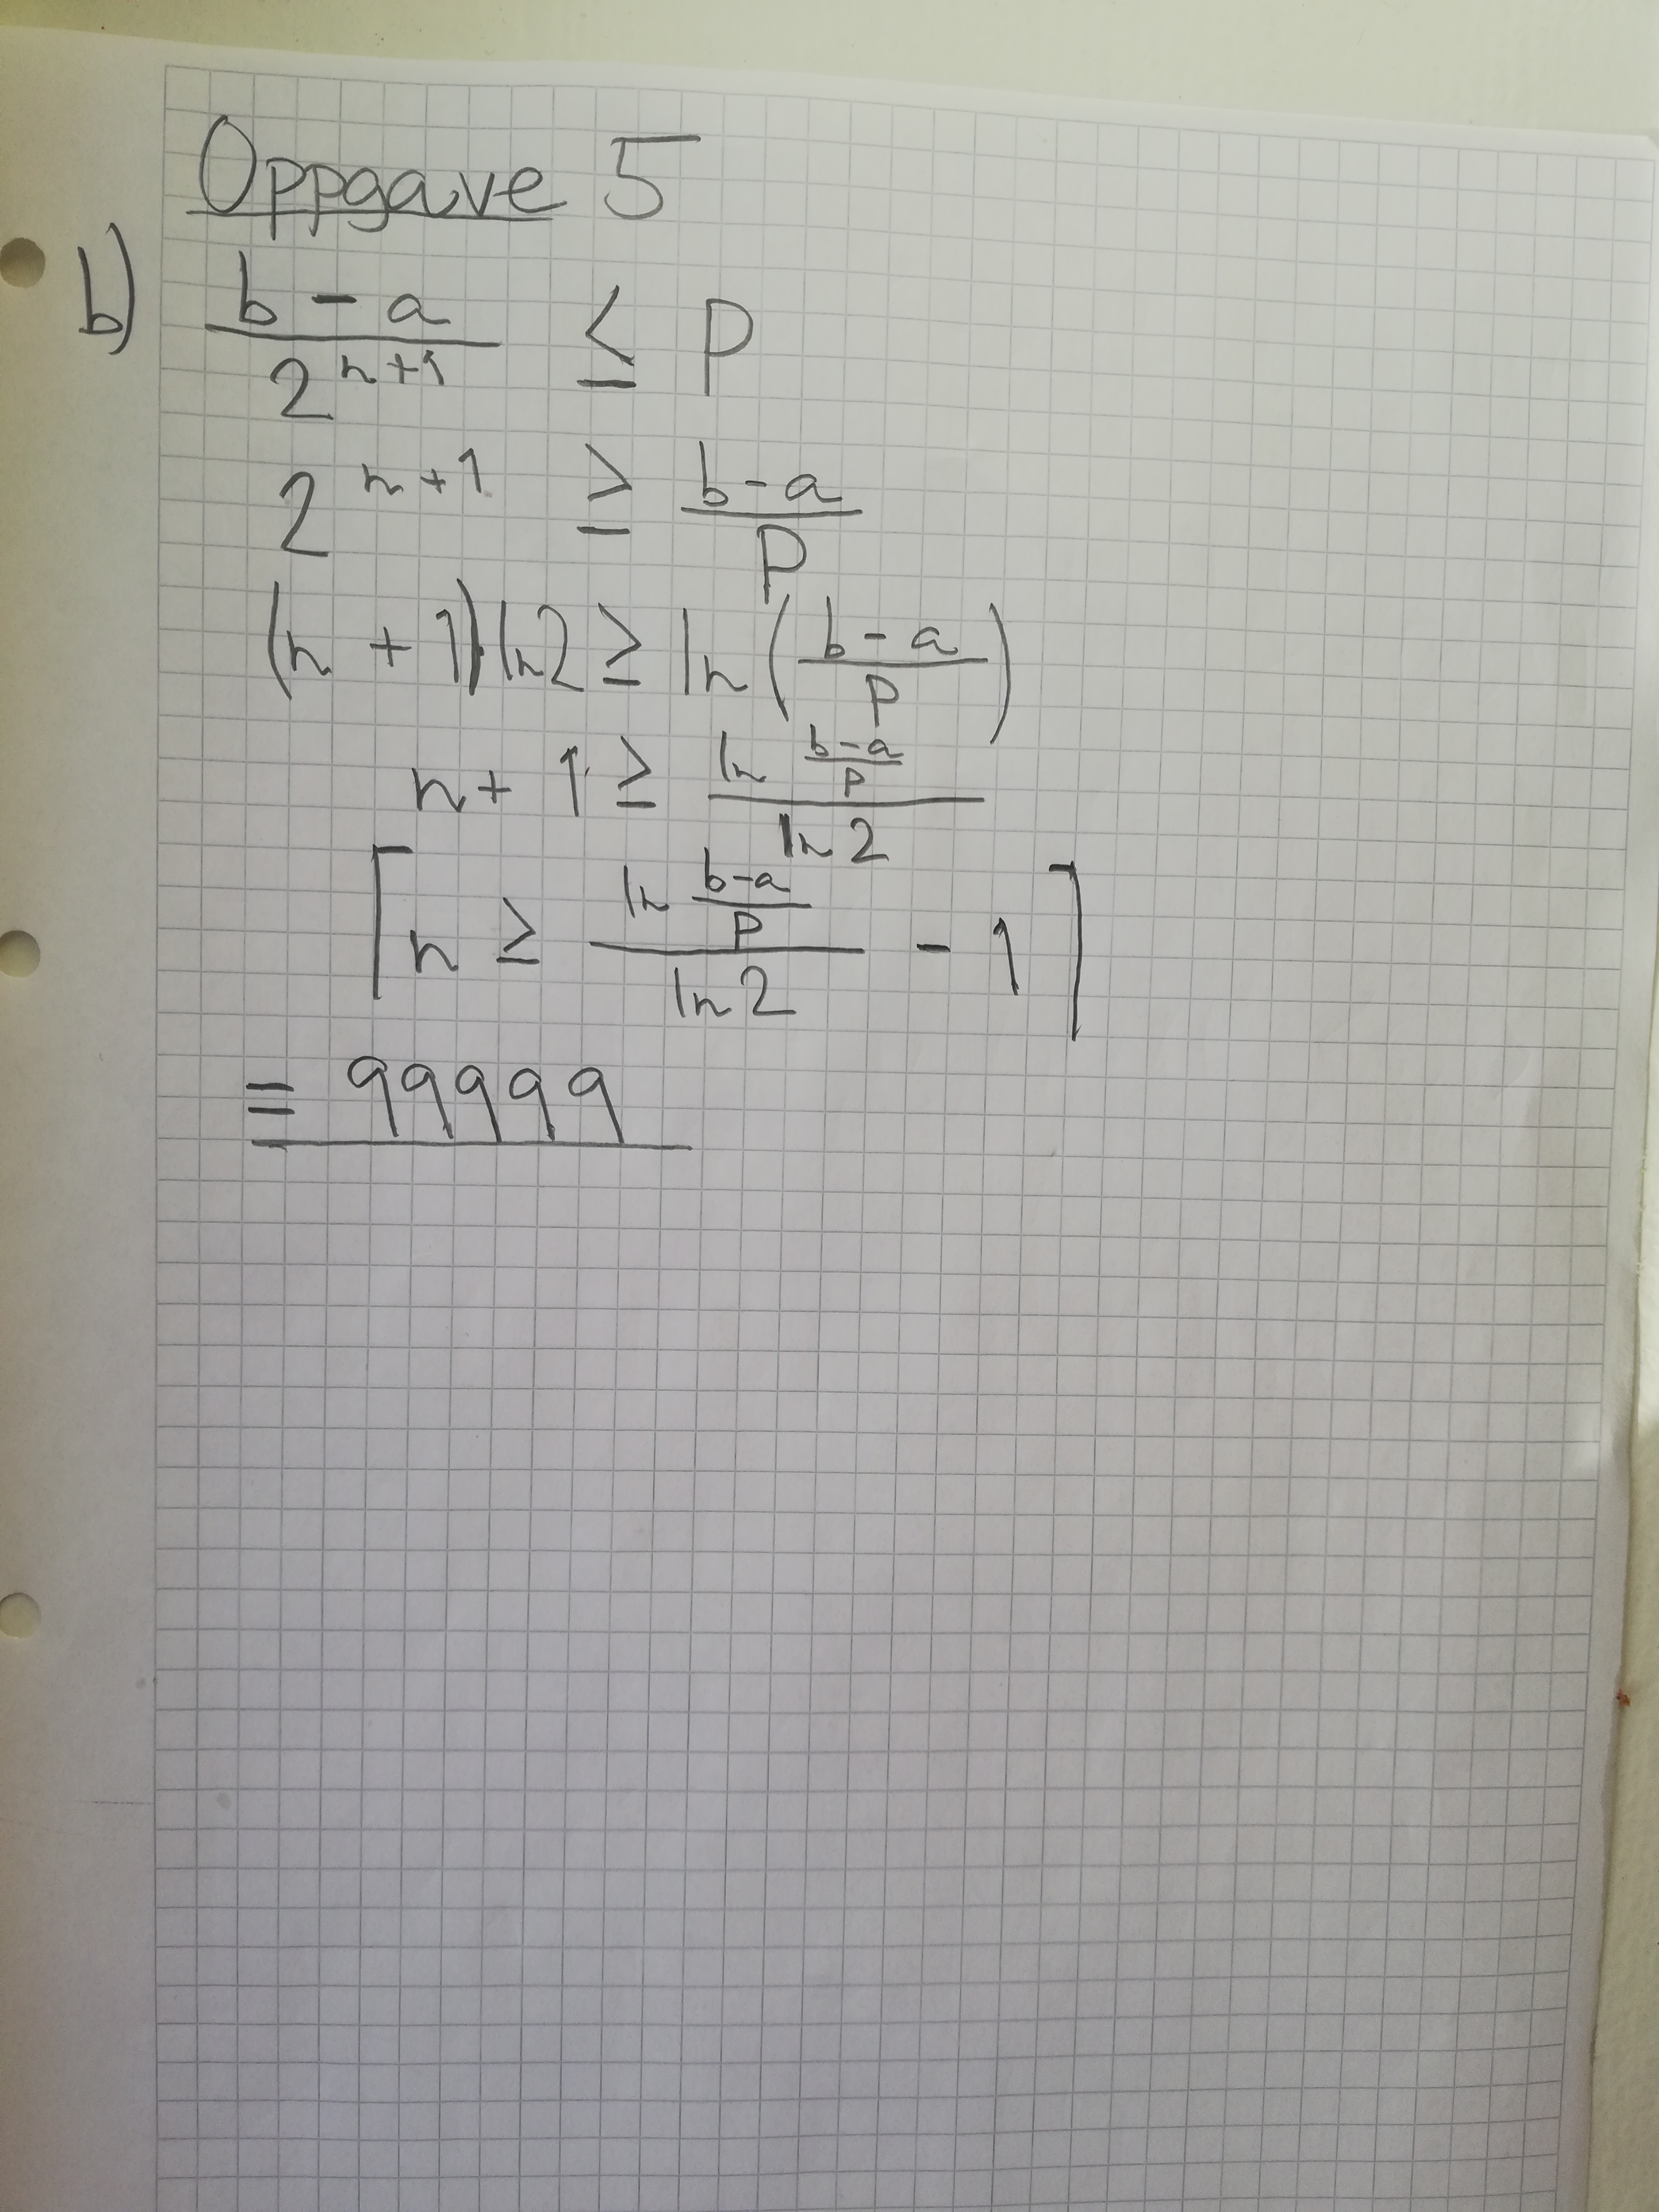 Oppgave 5
b) \frac{b-a}{2^{n+1}} ≤ P
2^{n+1} ≥ \frac{b-a}{P}
(n+1) ln2 ≥ ln(\frac{b-a}{P})
n+1 ≥ \frac{ln \frac{b-a}{P}}{ln2}
⌈n ≥ \frac{ln \frac{b-a}{P}}{ln2} - 1⌉
= 99999